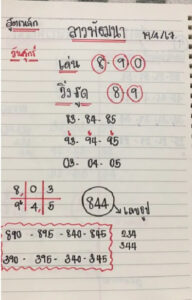 สูตรเลขเด็ด
ลาวพัฒนา 19/4/67
วันศุกร์
เด่น 8-9-0
วิ่งรูด 8,9
83-84-85
93-94-95
03-04-05
8,0 3
9 4,5
844 เลขชุด
890-895-840-845 234
390-395-340-345 344